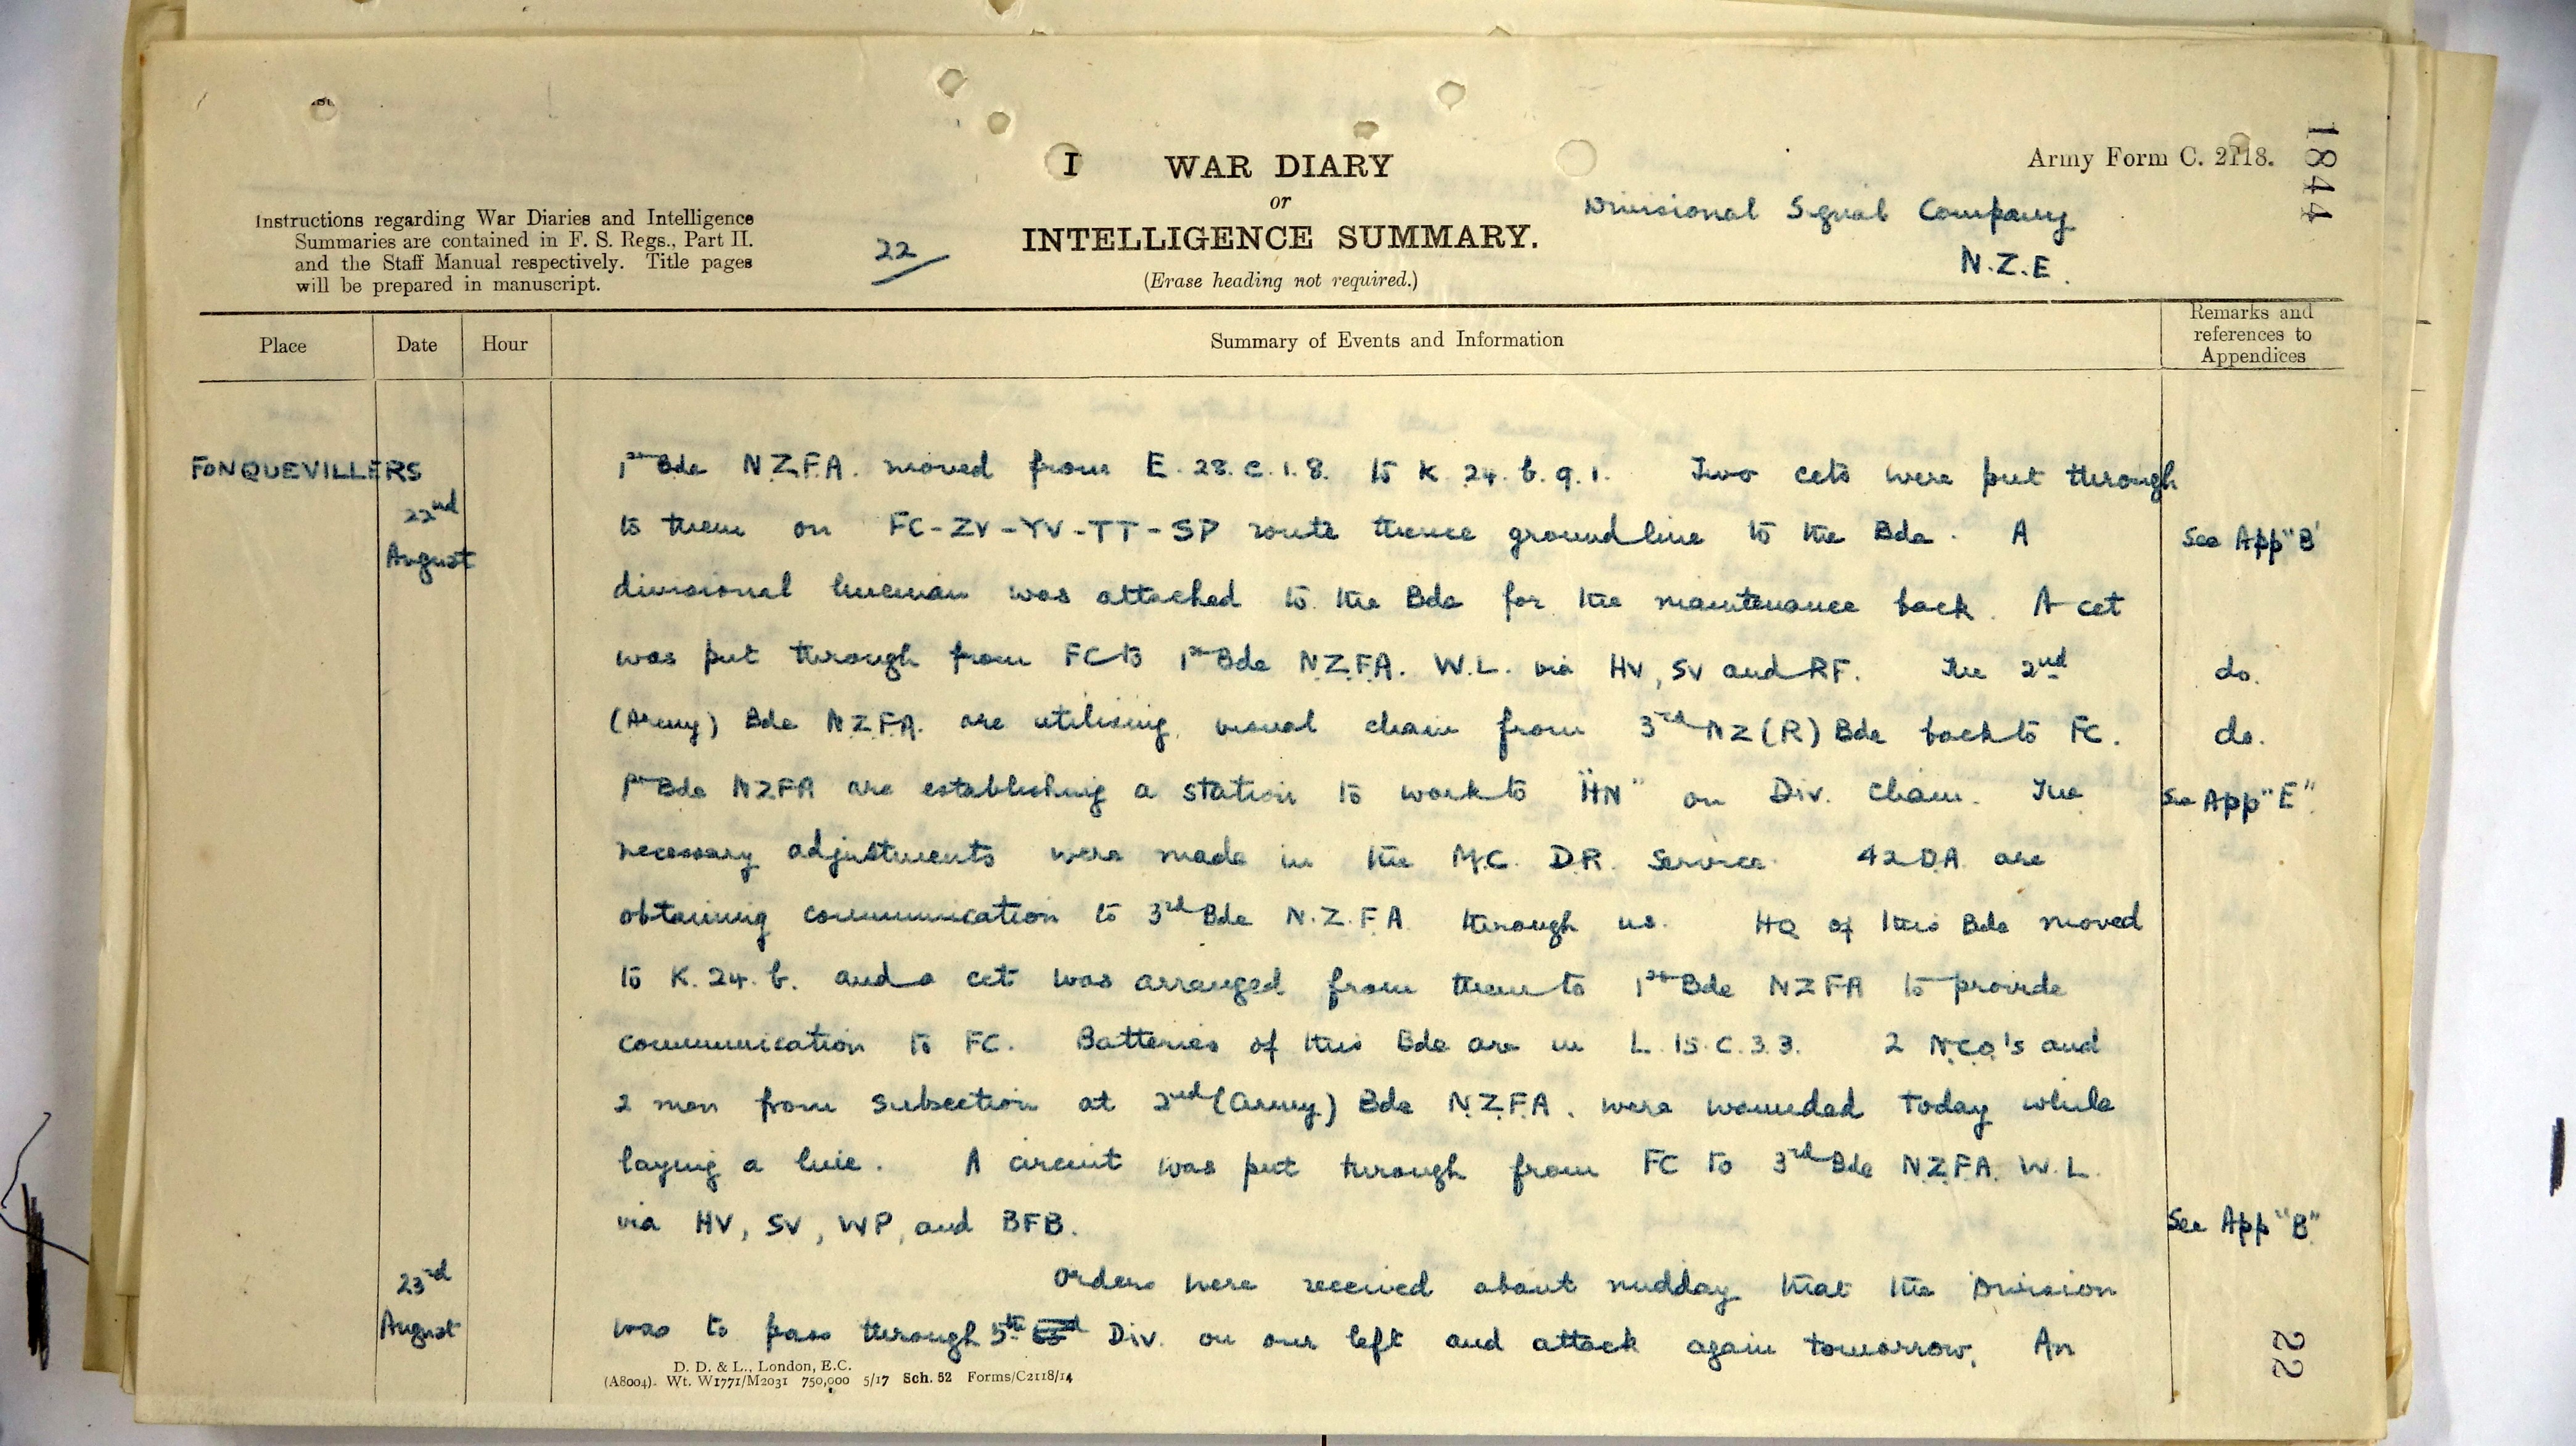 1844
Army Form C. 2118.
I WAR DIARY
or
INTELLIGENCE SUMMARY.
(Erase heading not required.)
Instructions regarding War Diaries and Intelligence
Summaries are contained in F. S. Regs., Part II.
and the Staff Manual respectively. Title pages
will be prepared in manuscript.
22
Divisional Signal Company
N.Z.E.
Place
Date
Hour
Summary of Events and Information
Remarks and
references to
Appendices
FONQUEVILLERS
22nd
August
1st Bde N.Z.F.A. moved from E.28.c.1.8. to K.24.b.9.1. Two ccts were put through
to them on FC-ZV-YV-TT-SP route thence groundline to the Bde. A See App "B"
divisional lineman was attached to the Bde for the maintenance back. A cct
was put through from FC to 1st Bde N.Z.F.A. W.L. via HV, SV and RF. The 2nd do.
(Army) Bde N.Z.F.A. are utilising visual chain from 3rd NZ(R) Bde back to FC. do.
1st Bde NZFA are establishing a station to work to "HN" on Div. Chain. The See App "E".
necessary adjustments were made in the M.C. D.R. Service. 42 D.A. are
obtaining communication to 3rd Bde N.Z.F.A. through us. HQ of this Bde moved
to K.24.b. and a cct was arranged from them to 1st Bde NZFA to provide
communication to FC. Batteries of this Bde are in L.15.C.3.3. 2 N.C.O.'s and
2 men from subsection at 2nd (Army) Bde N.Z.F.A. were wounded today while
laying a line. A circuit was put through from FC to 3rd Bde N.Z.F.A. W.L.
via HV, SV, WP, and BFB. See App "B"
23rd
August
Orders were received about midday that the Division
was to pass through 5th Div. on our left and attack again tomorrow. An
22
D. D. & L., London, E.C.
(A8004). Wt. W1771/M2031 750,000 5/17 Sch. 52 Forms/C2118/14